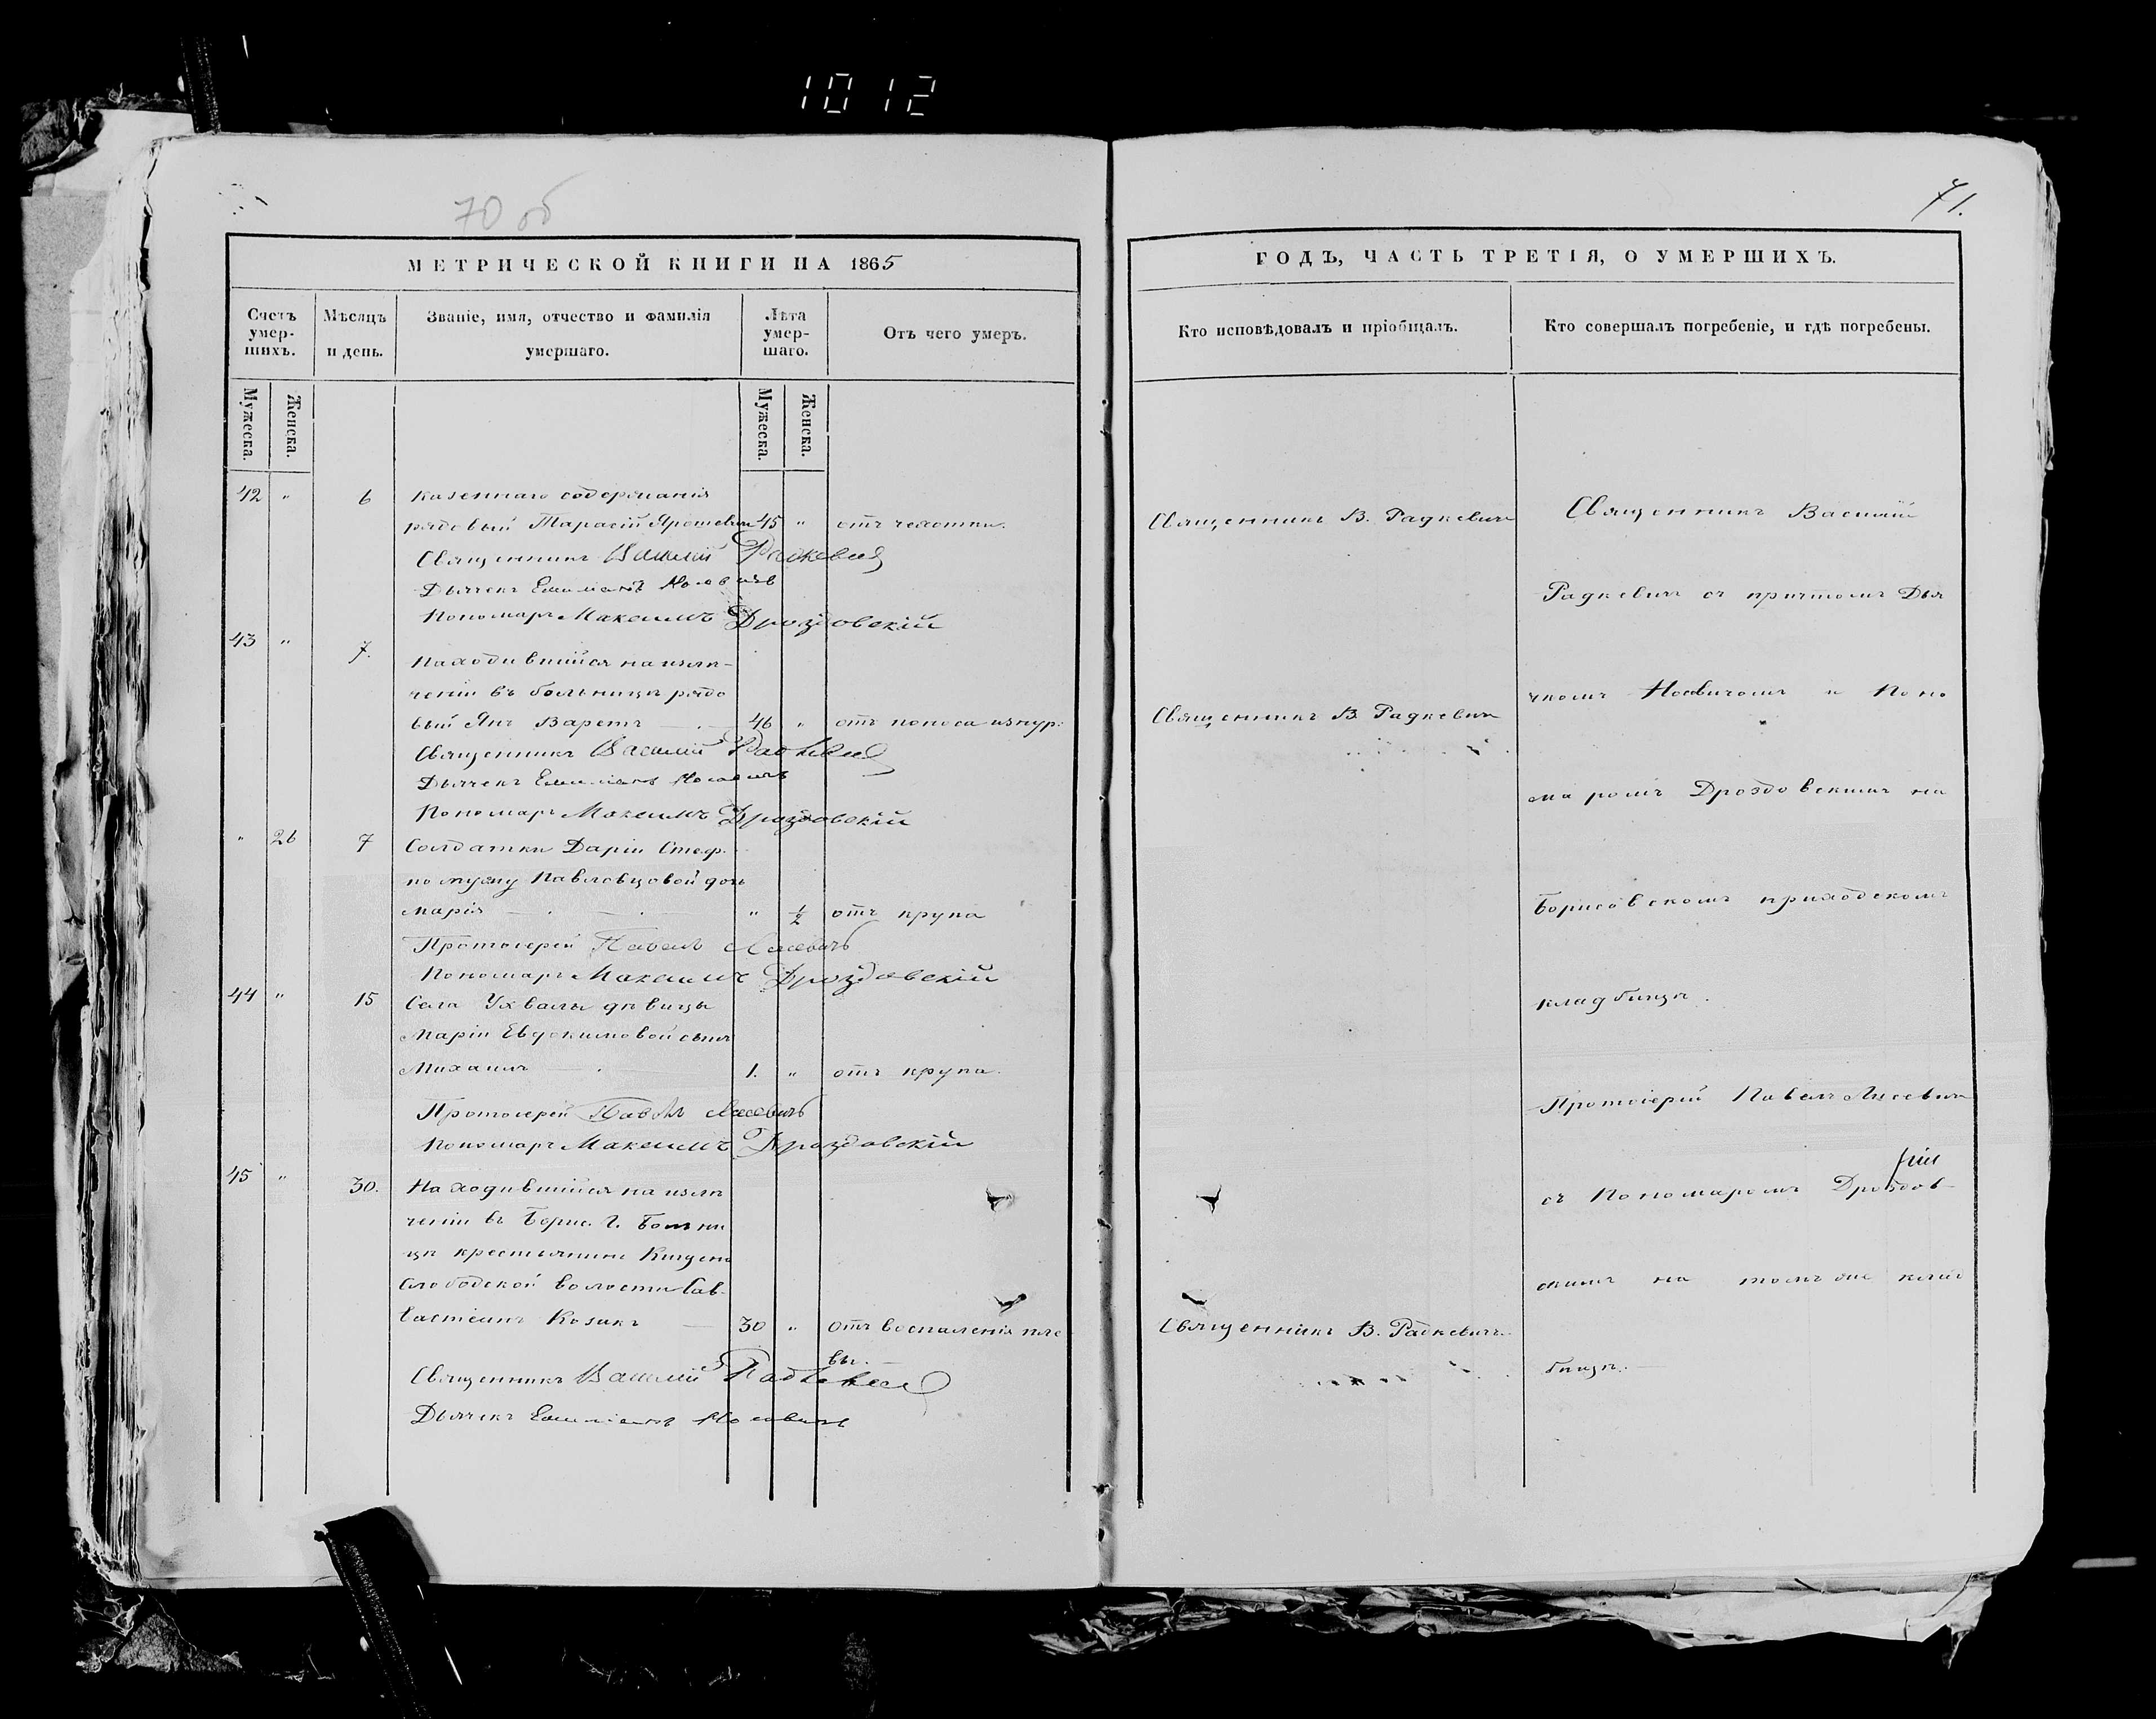 1012
70 об
71.
МЕТРИЧЕСКОЙ КНИГИ НА 1865
Счетъ умер-шихъ.
Мѣсяцъ и день.
Званіе, имя, отчество и фамилія умершаго.
Лѣта умер-шаго.
Отъ чего умеръ.
Мужеска.
Женска.
Мужеска.
Женска.
42 " 6 Казеннаго содержанія
рядовый Тарасій Ярошевичъ 45 " отъ чахотки.
Священникъ Василій Радкевичъ
Дьячекъ Емиліанъ Носовичъ
Пономарь Максимъ Дроздовскій
43 " 7. Находившійся на излѣ-
ченіи въ больницѣ рядо
вый Янъ Варетъ 46 " отъ поноса изнур:
Священникъ Василій Радкевичъ
Дьячекъ Емиліанъ Носовичъ
Пономарь Максимъ Дроздовскій
" 26 7 Солдатки Даріи Стеф.
по мужу Павловцовой дочь
Марія " 1/2 отъ крупа
Протоіерей Павелъ Лисевичъ
Пономарь Максимъ Дроздовскій
44 " 15 Села Ухвалы дѣвицы
Маріи Евдокимовой сынъ
Михаилъ 1. " отъ крупа.
Протоіерей Павелъ Лисевичъ
Пономарь Максимъ Дроздовскій
45 " 30. Находившійся на излѣ
ченіи въ Борис. Г. Больни
цѣ крестьянинъ
Слободской волости Сав-
вастіанъ Козакъ 30 " отъ воспаленія
вы.
Священникъ Василій Радкевичъ
Дьячекъ Емиліанъ Носовичъ
ГОДЪ, ЧАСТЬ ТРЕТІЯ, О УМЕРШИХЪ.
Кто исповѣдовалъ и пріобщалъ.
Кто совершалъ погребеніе, и гдѣ погребены.
Священникъ В. Радкевичъ
Священникъ В. Радкевичъ
Священникъ В. Радкевичъ
Священникъ Василій
Радкевичъ съ причтомъ Дья
чкомъ Носовичомъ и Поно
маромъ Дроздовскимъ на
Борисовскомъ приходскомъ
кладбищѣ.
Протоіерей Павелъ Лисевичъ
съ Пономаромъ Дроздов-
скимъ на томъ же клад
бищѣ.